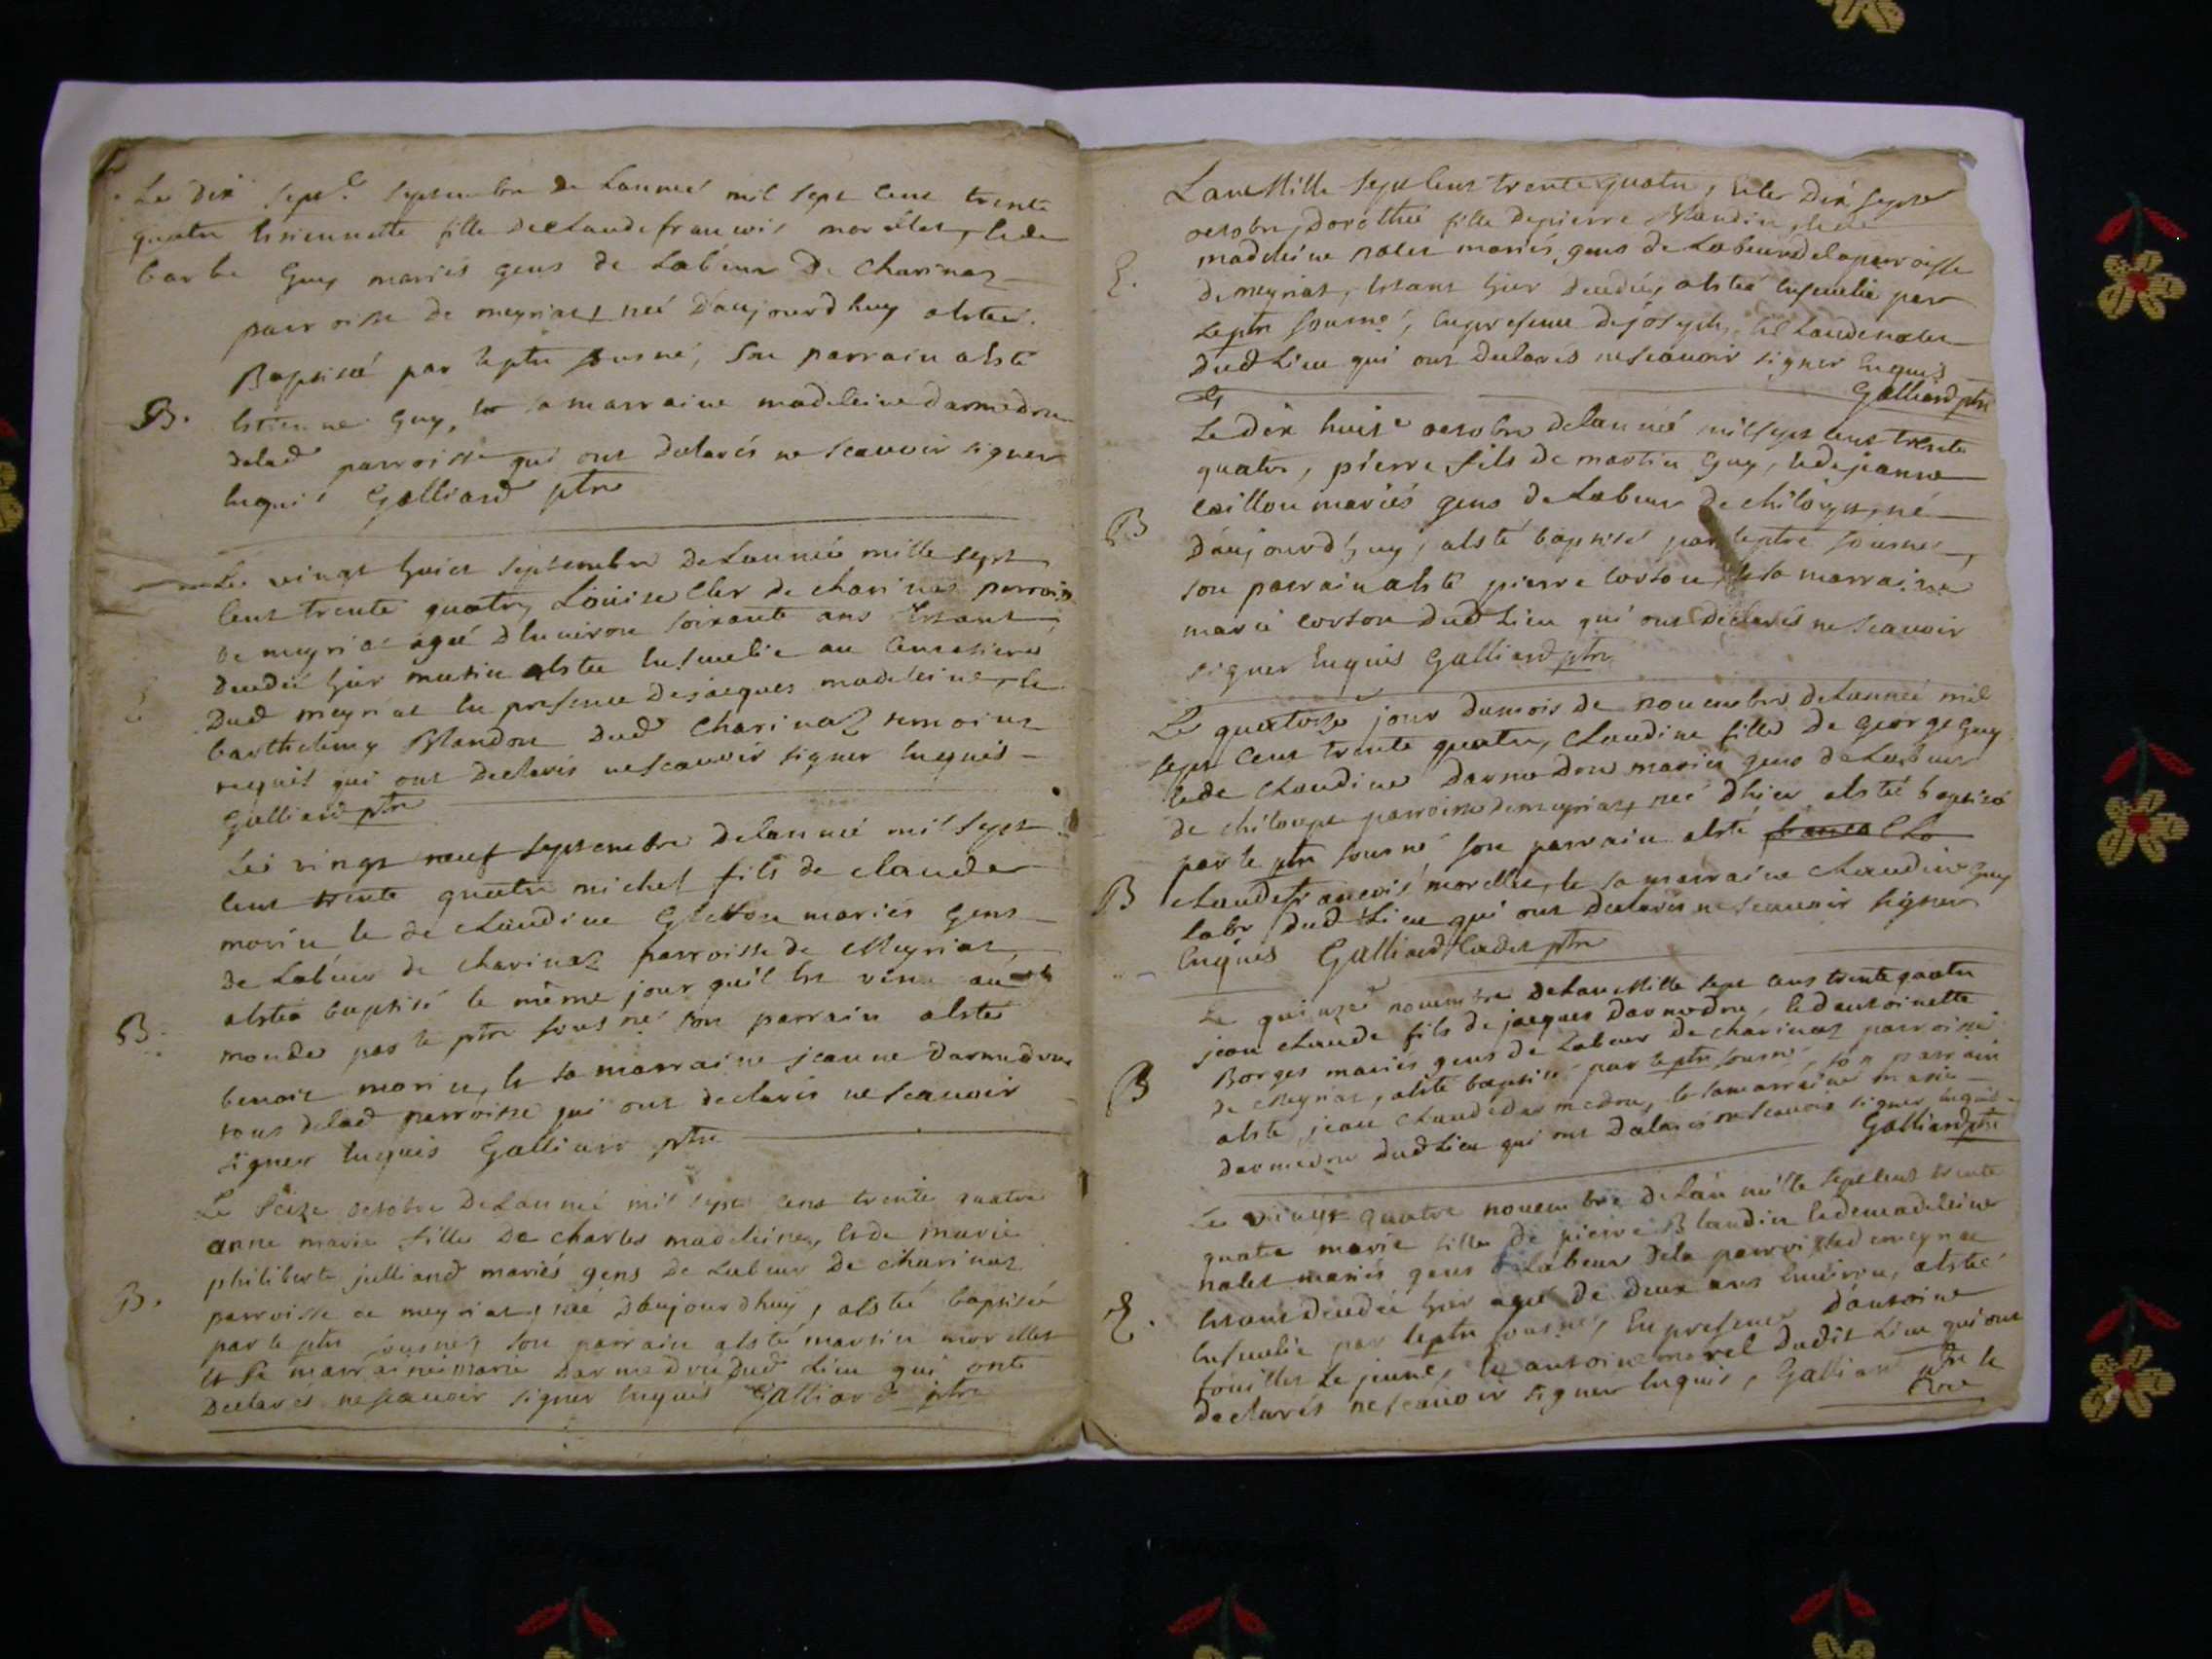 Le dix sept.e septembre de lannée mil sept cent trente
quatre Estiennette fille de Claude francois morellet, & de
barbe Guy mariés gens de Labeur De Charinaz
parroisse de meyriat, née D'aujourdhuy aesteé.
Baptiseé par le ptre sousné, son parrain a esté
B. Estienne Guy, & sa marraine madeleine darmedru
delad parroisse qui ont declarés ne scauoir signer
Enquis Galliard ptre
Le vingt huict septembre De lannée mille sept
cent trente quatre, Louise Cler de charinas parroisse
de meyriat ageé d'Enuiron soixante ans Estant
decedeé hier matin a estee Enseuelie au Cemetiere
E Dud meyriat En presence de jacques madeleine, &
barthelemy Blandon dud Charinaz temoins
requis qui ont declarés ne scauoir signer Enquis
Galliard ptre
Le vingt neuf septembre de lanneé mil sept
cent trente quatre michel fils de claude
morin & de claudine mariés gens
de Labeur de charinaz parroisse de Meyriat,
a esté baptisé le même jour qu'il Est venu au
B. monde par le ptre sousné son parrain a esté
benoit morin, & sa marraine jeanne darmedru
tous delad parroisse qui ont declarés ne scauoir
signer Enquis Galliard ptre
Le seize octobre De lanneé mil sept cent trente quatre
anne marie fille De charles madeleine, & de marie
philiberte julliand mariés gens De Labeur De charinaz
B. parroisse de meyriat, née D'aujourdhuy, a esté baptiseé
par le ptre sousné, son parrain a esté martin morellet
& sa marraine marie Darmedru Dud Lieu qui ont
Declarés ne scauoir signer Enquis Galliard ptre
Lan Mille sept cent trente quatre, & le Dix sept
octobre, Dorothée fille De pierre Blandin, & de
madeleine nalet mariés, gens de Labeur de la parroisse
E. de meyriat, Estant hier decedeé, a esteé Enseuelie par
Le ptre sousné, En presence de joseph, & Claude nalet
dud Lieu qui ont declarés ne scauoir signer Enquis
Galliard ptre
Le dix huit.e octobre de lanneé mil sept cent trente
quatre, pierre fils de martin Guy, & de jeanne
caillon mariés gens de Labeur de chiloup, né
B D'aujourd'huy, a esté baptisé par le ptre sousné,
son parrain a esté pierre corton, & sa marraine
marie corton dud Lieu qui ont declarés ne scauoir
signer Enquis Galliard ptre
Le quatorze jour du mois de nouembre de lanneé mil
sept cent trente quatre, Claudine fille de George Guy
& de Claudine Darmedru mariés gens de Labeur
de chiloup parroisse de meyriat, née d'hier, a esté baptisé
par le ptre sousné, son parrain a esté
B claude francois morellet, & sa marraine claudine Guy
Labr dud Lieu qui ont declarés ne scauoir signer
Enquis Galliard Cadet ptre
Le quinze nouembre de lan Mille sept cent trente quatre
jean claude fils de jacques Darmedru, & d'antoinette
Borges mariés gens de Labeur de charinaz parroisse
B de Meyriat, a esté baptisé par le ptre sousné, son parrain
a esté jean claude Darmedru, & sa marraine marie
Darmedru dud Lieu qui ont declarés ne scauoir signer Enquis
Galliard ptre
Le vingt quatre nouembre de lan mille sept cent trente
quatre marie fille de pierre Blandin & de madeleine
nalet mariés gens de Labeur de la parroisse de meyriat
E. Estant decedeé hier ageé de deux ans Enuiron, a esteé
Enseuelie par le ptre sousné, En presence d'antoine
fouillet Le jeune, & antoine morel dudit Lieu qui ont
declarés ne scauoir signer Enquis, Galliard ptre &